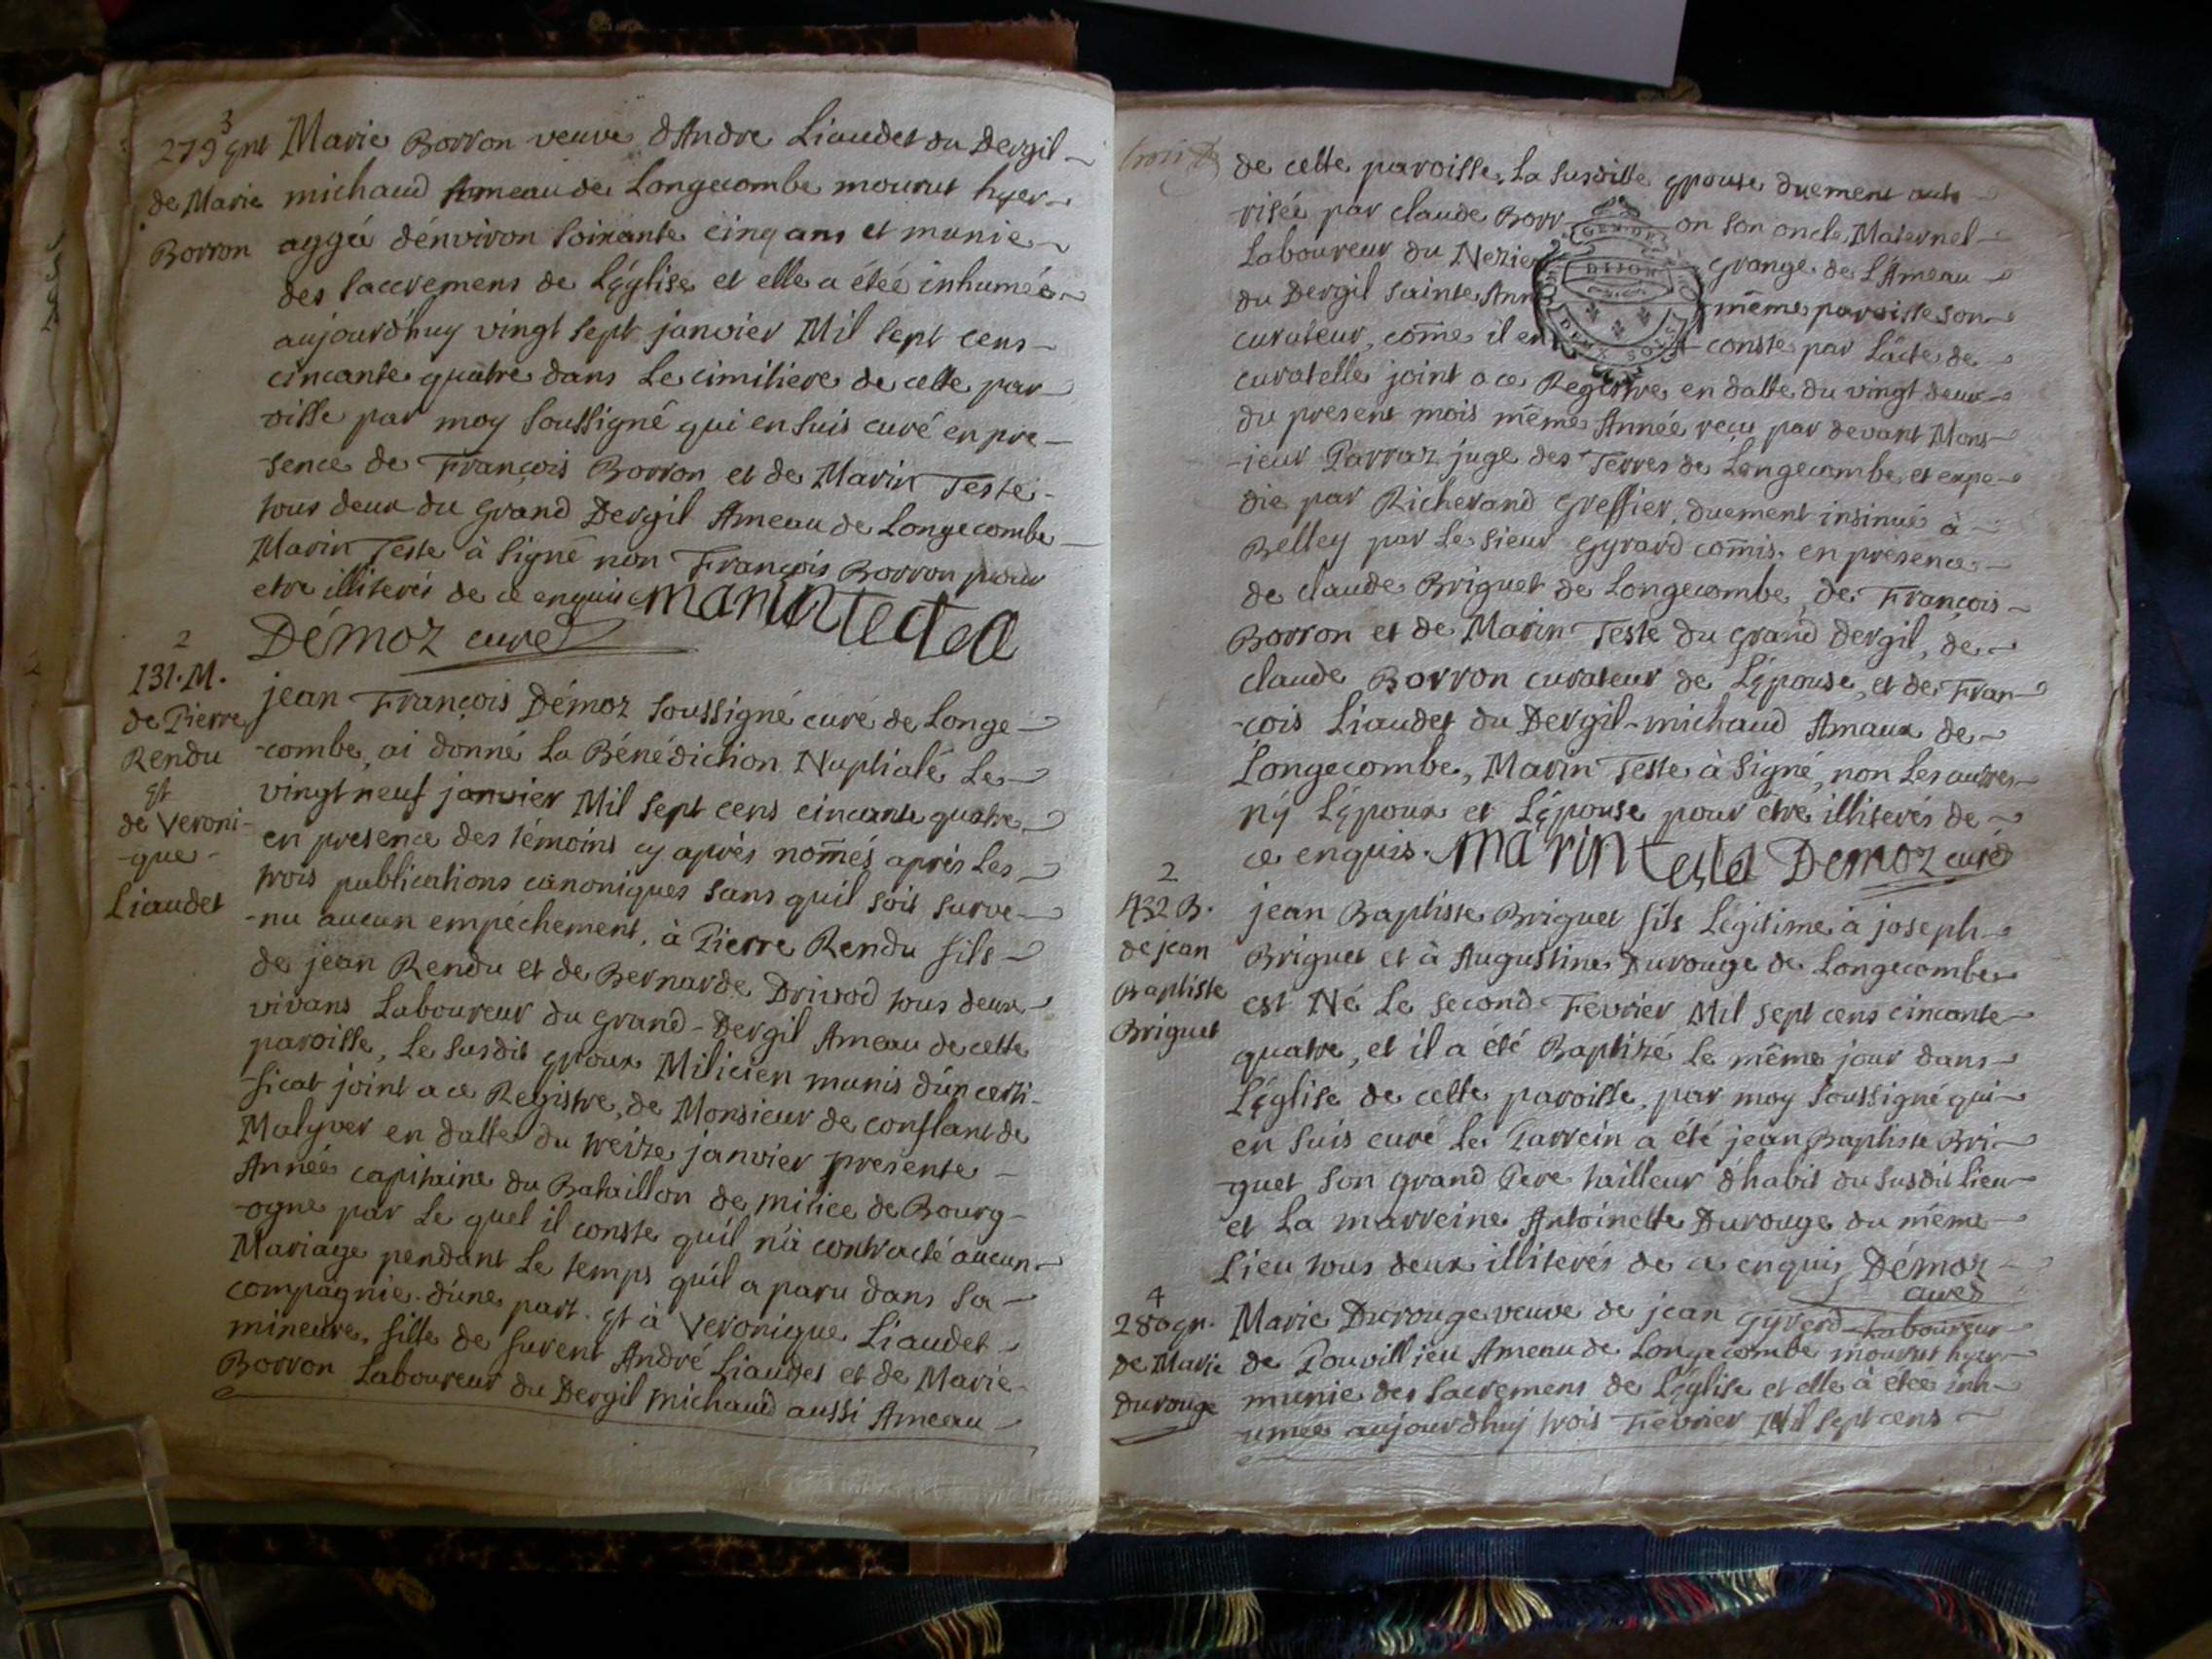 3
279 gnt Marie Borron veuve d'Andre Liaudet du Dergil
de Marie michaud Ameau de Longecombe mourut hyer
Borron aggée d'environ soixante cinq ans et munie
des saccremens de L'église et elle a étée inhumée
aujourd'huy vingt sept janvier Mil sept cens
cincante quatre dans Le cimitiere de cette par
oisse par moy soussigné qui en suis curé en pre-
sence de François Borron et de Marin Teste
tous deux du grand Dergil Ameau de Longecombe
Marin Teste à signé non François Borron pour
etre illiterés de ce enquis marin testea
Démoz curé
2
131. M.
de Pierre
Rendu
et
de Veroni-
que
Liaudet
jean François Démoz soussigné curé de Longe-
combe, ai donné La Bénédiction Nuptialé Le
vingt neuf janvier Mil sept cens cincante quatre
en presence des témoins cy aprés nom̃és aprés Les
trois publications canoniques sans quil soit surve-
-nu aucun empéchement, à Pierre Rendu fils
de jean Rendu et de Bernarde Drivod tous deux
vivans Laboureur du grand-Dergil Ameau de cette
paroisse, Le susdit Epoux Milicien munis d'un certi-
ficat joint a ce Registre, de Monsieur de conflans de
Malyver en datte du treize janvier presente
Année capitaine du Bataillon de milice de Bourg-
-ogne par Le quel il conste qu'il n'a contracté aucun
Mariage pendant Le temps qu'il a paru dans sa
compagnie d'une part. Et à Veronique Liaudet
mineure, fille de furent André Liaudet et de Marie
Borron Laboureur du Dergil michaud aussi Ameau
de cette paroisse, La susditte Epouse duement auto
risée par claude Borr on son oncle Maternel
Laboureur du Nezier grange de L'Ameau
du Dergil sainte Ann même paroisse son
curateur, com̃e il en conste par L'acte de
curatelle joint a ce Registre, en datte du vingt deux
du present mois même Année reçu par devant Mons-
-ieur Parraz juge des Terres de Longecombe, et expe-
die par Richerand greffier, duement insinué à
Belley par Le sieur gyrard com̃is, en présence
de claude Briguet de Longecombe, de François
Borron et de Marin Teste du grand Dergil, de
claude Borron curateur de L'épouse, et de Fran-
-cois Liaudet du Dergil-michaud Amaux de
Longecombe, Marin Teste à signé, non Les autres
ny L'époux et L'épouse pour etre illiterés de
ce enquis. marin testd Demoz curé
2
432 B.
de jean
Baptiste
Briguet
jean Baptiste Briguet fils Légitime à joseph
Briguet et à Augustine Durouge de Longecombe
est Né Le second Fevrier Mil sept cens cincante
quatre, et il a été Baptizé Le même jour dans
L'église de cette paroisse, par moy soussigné qui
en suis curé Le Parrein a été jean Baptiste Bri-
guet son grand Pere tailleur d'habit du susdit Lieu
et La marreine Antoinette Durouge du même
Lieu tous deux illiterés de ce enquis Démoz
curé
4
280 gn.
de Marie
Durouge
Marie Durouge veuve de jean Gyrerd Laboureur
de Pouvillieu Ameau de Longecombe mourut hyer
munie des sacremens de L'église et elle à étée inh-
umée aujourdhuj trois Fievrier Mil sept cens
DIJON
DEUX SOLS